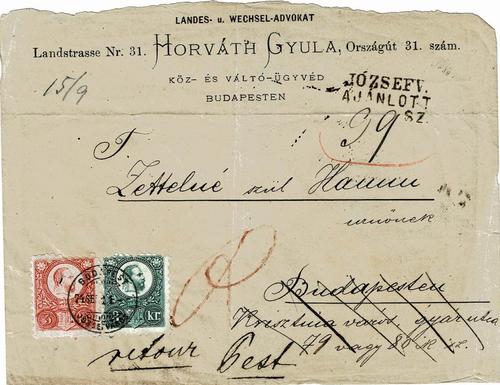 LANDES- u. WECHSEL-ADVOKAT
Landstrasse Nr. 31. HORVÁTH GYULA, Országút 31. szám.
KÖZ- ÉS VÁLTÓ-ÜGYVÉD
BUDAPESTEN
15/9
JÓZSEFV.
AJÁNLOTT
SZ.
39
T.
Zettelné szül Hamm
urnőnek
Budapesten
Krisztina város gyár utca
79 vagy sz.
retour Pest
5
Kr.